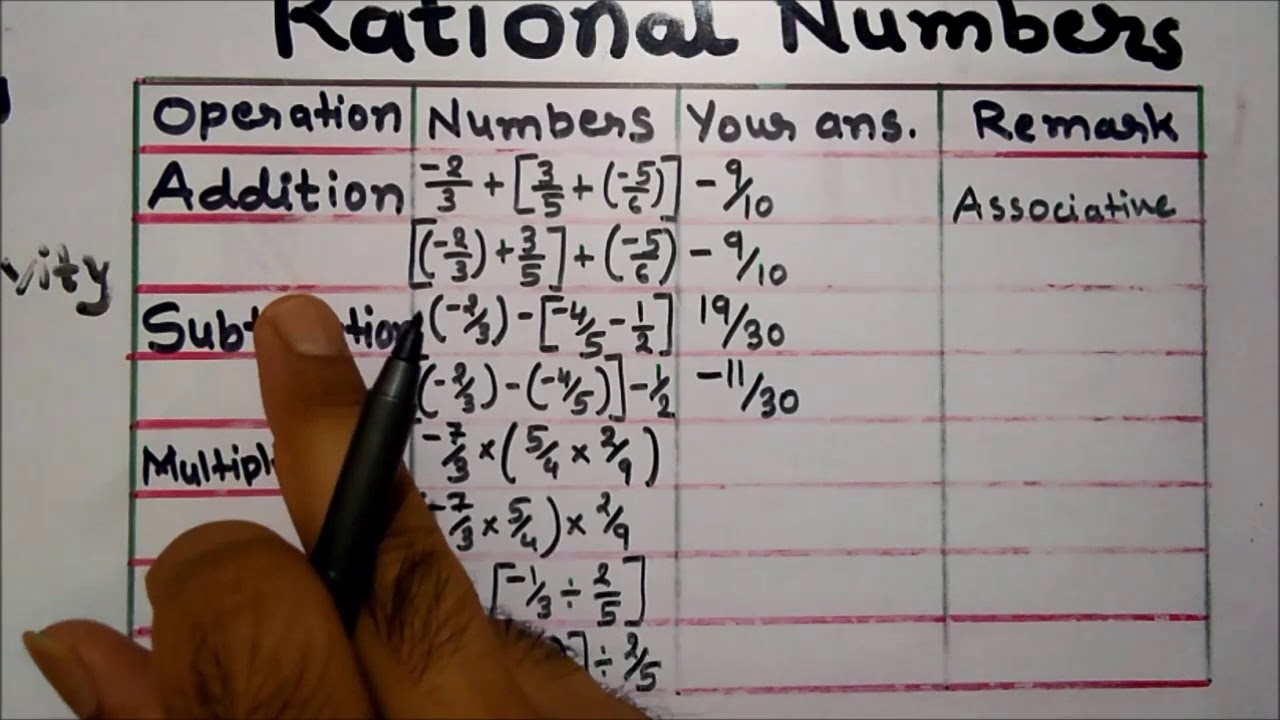 Rational Numbers
Operation Numbers Your ans. Remark
Addition -2/3 + [3/5 + (-5/6)] -9/10 Associative
[(-2/3) + 3/5] + (-5/6) -9/10
(-2/3) - [-4/5 - 1/2] 19/30
(-2/3) - (-4/5)] - 1/2 -11/30
-7/3 × (5/4 × 2/9)
-7/3 × 5/4) × 2/9
[-1/3 ÷ 2/5]
] ÷ 2/5